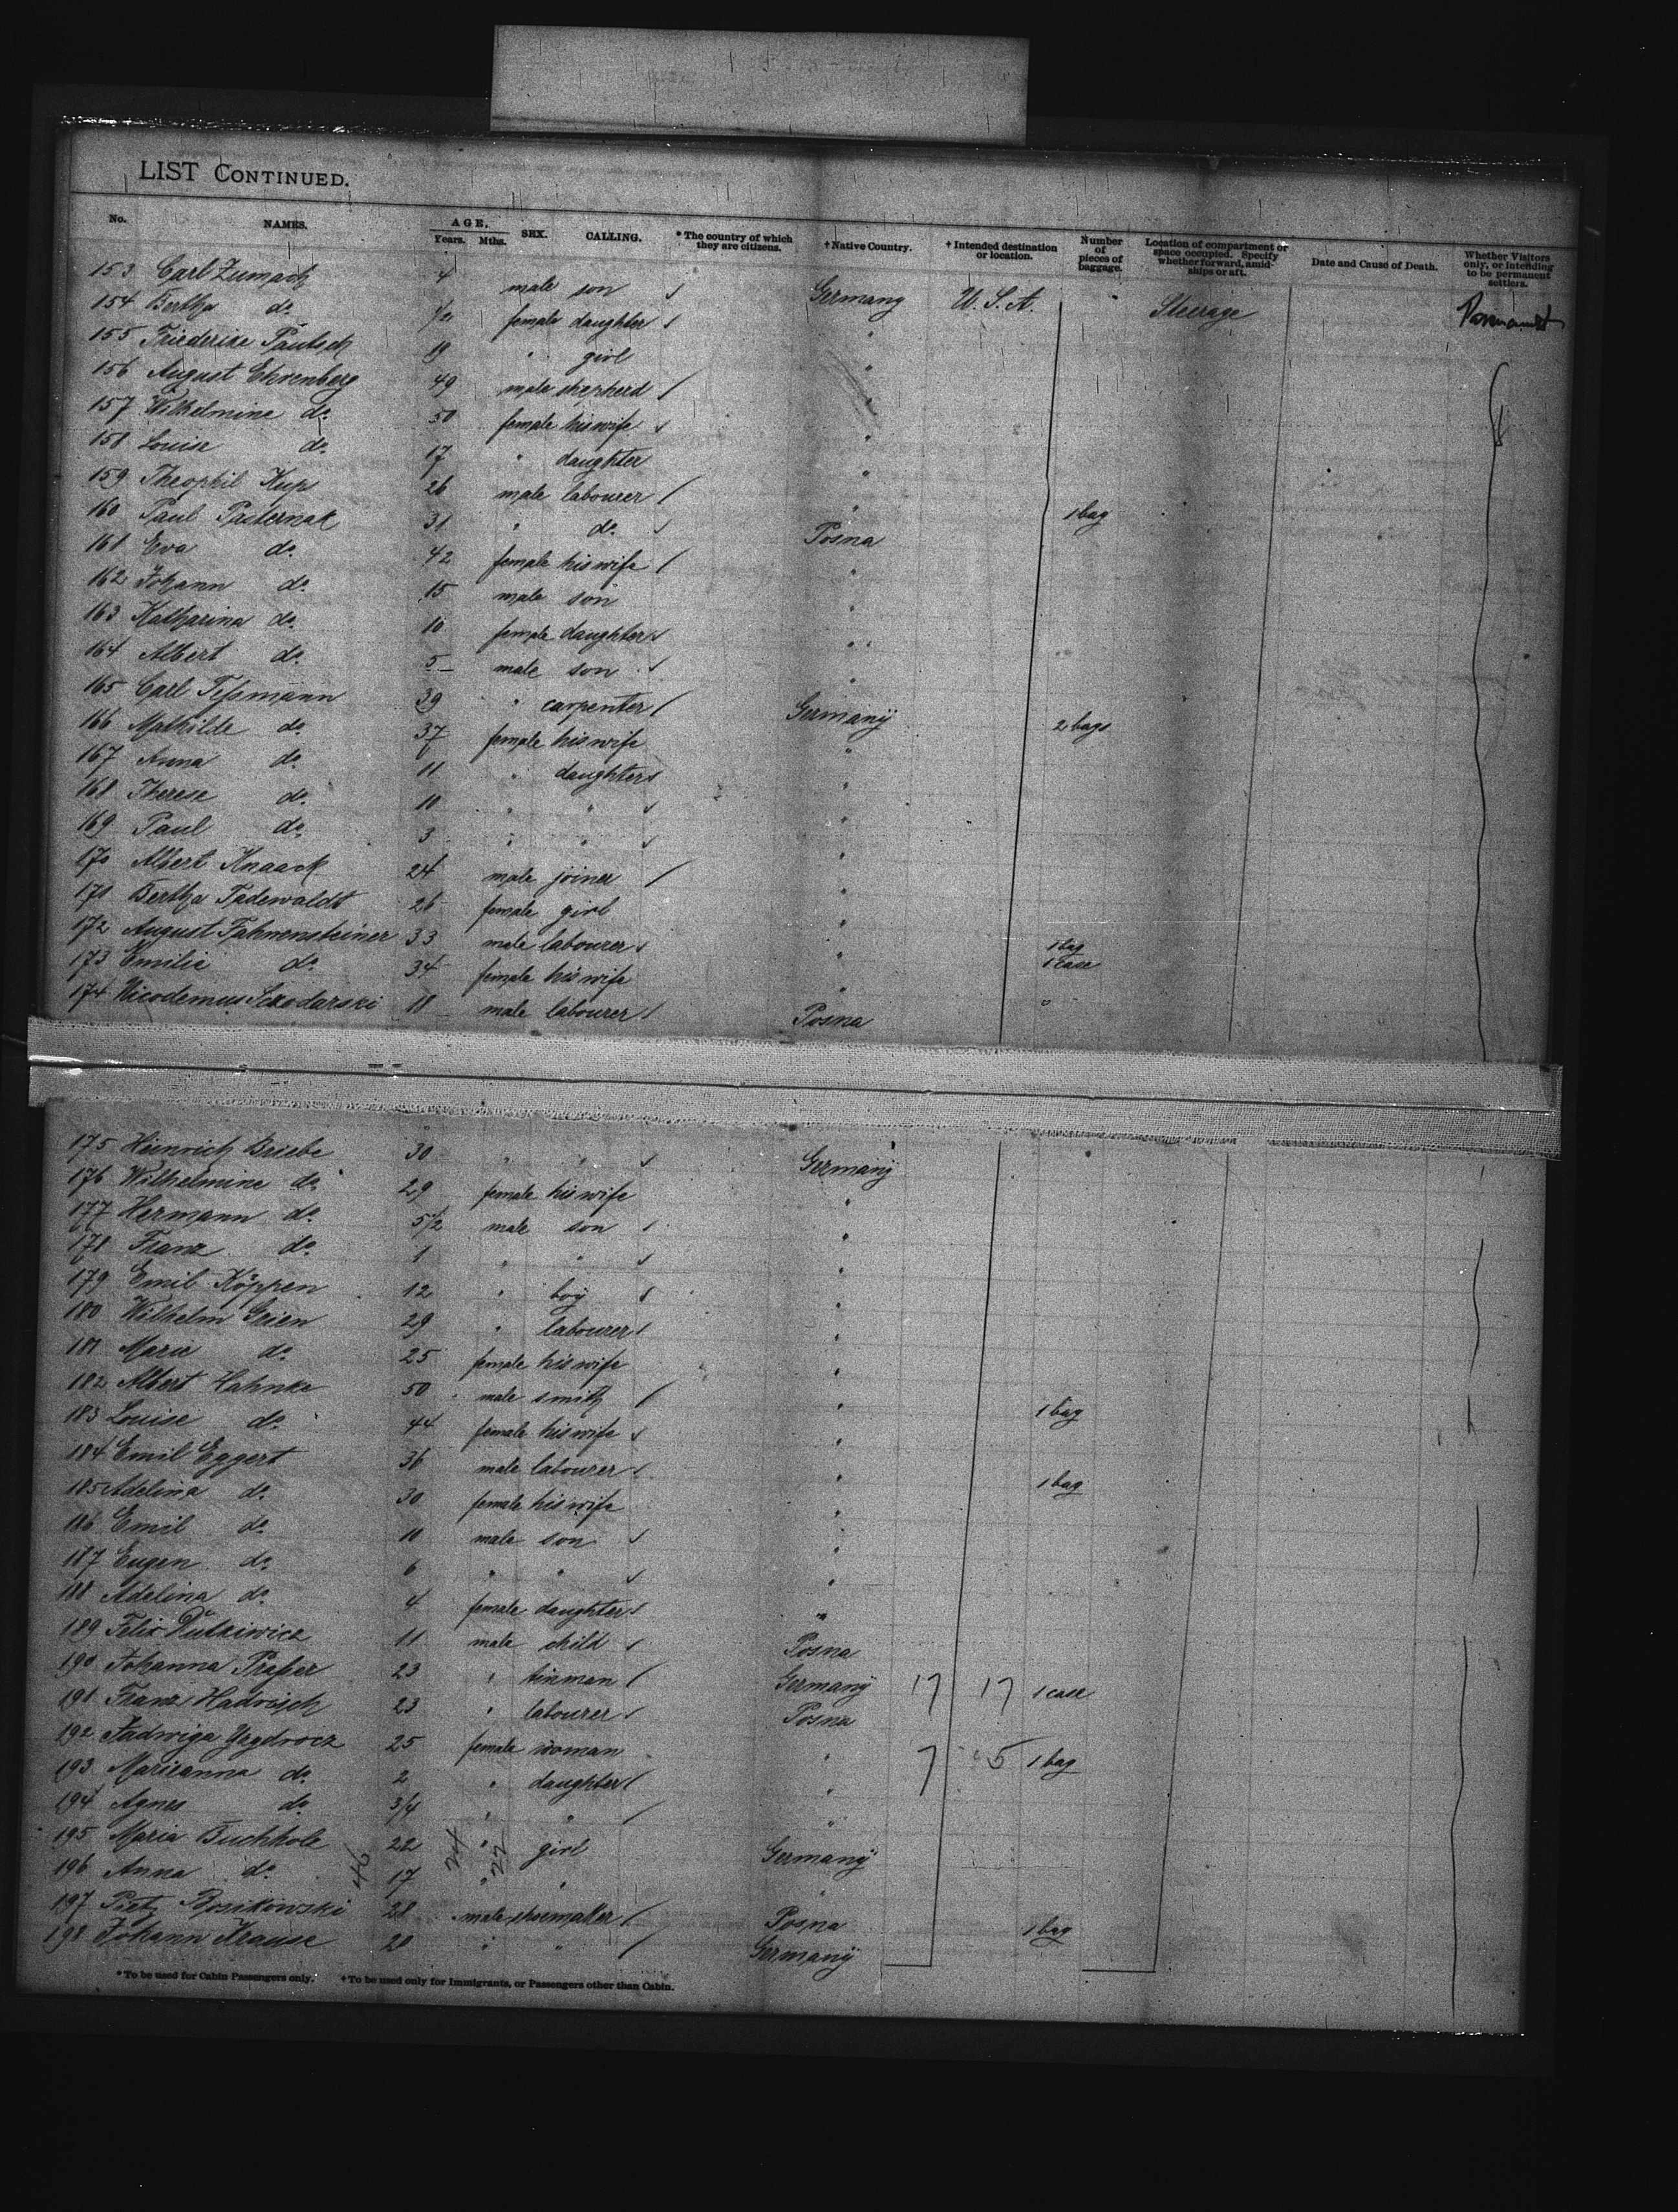 LIST CONTINUED.
No. NAMES. AGE. Years. Mths. SEX. CALLING. * The country of which they are citizens. † Native Country. † Intended destination or location. Number of pieces of baggage. Location of compartment or space occupied. Specify whether forward, amidships or aft. Date and Cause of Death. Whether Visitors only, or intending to be permanent settlers.
153 Carl Zumach 4 male son Germany U.S.A. " Steerage Permanent
154 Bertha do. female daughter "
155 Friederike Pautsch 19 " girl "
156 August Ehrenberg 49 male shepherd "
157 Wilhelmine do. 50 female his wife "
158 Louise do. 17 " daughter "
159 Theophil Kup 26 male labourer " 1 bag
160 Paul Pasternak 31 " do. Posna
161 Eva do. 42 female his wife "
162 Johann do. 15 male son "
163 Katharina do. 10 female daughter "
164 Albert do. 5 male son "
165 Carl Teßmann 39 " carpenter Germany 2 bags
166 Mathilde do. 37 female his wife "
167 Anna do. 11 " daughter "
168 Therese do. 10 " " "
169 Paul do. 3 " " "
170 Albert Knaack 24 male joiner "
171 Bertha Padewaldt 26 female girl "
172 August Fahrensteiner 33 male labourer " 1 bag 1 case
173 Emilie do. 34 female his wife "
174 Nicodemus Sckodarski 18 male labourer Posna "
175 Heinrich Briebe 30 " " Germany
176 Wilhelmine do. 29 female his wife "
177 Hermann do. 5 1/2 male son "
178 Franz do. 1 " " "
179 Emil Köppen 12 " boy "
180 Wilhelm Geien 29 " labourer "
181 Marie do. 25 female his wife "
182 Albert Hahnke 50 male smith " 1 bag
183 Louise do. 44 female his wife "
184 Emil Eggert 36 male labourer " 1 bag
185 Adelina do. 30 female his wife "
186 Emil do. 10 male son "
187 Eugen do. 6 " " "
188 Adelina do. 4 female daughter "
189 Felix Rutkiwicz 11 male child Posna
190 Johanna Praßer 23 " tinman Germany 17 17 1 case
191 Franz Hadrisch 23 " labourer Posna
192 Jadwiga 25 female woman " 7 5 1 bag
193 Marianna do. 2 " daughter "
194 Agnes do. 3/4 " " "
195 Maria Buchholz 22 " girl Germany
196 Anna do. 17 " " "
46 24 22
197 Pietz Rosikowski 28 male shoemaker Posna 1 bag
198 Johann Krause 20 " " Germany
* To be used for Cabin Passengers only. † To be used only for Immigrants, or Passengers other than Cabin.